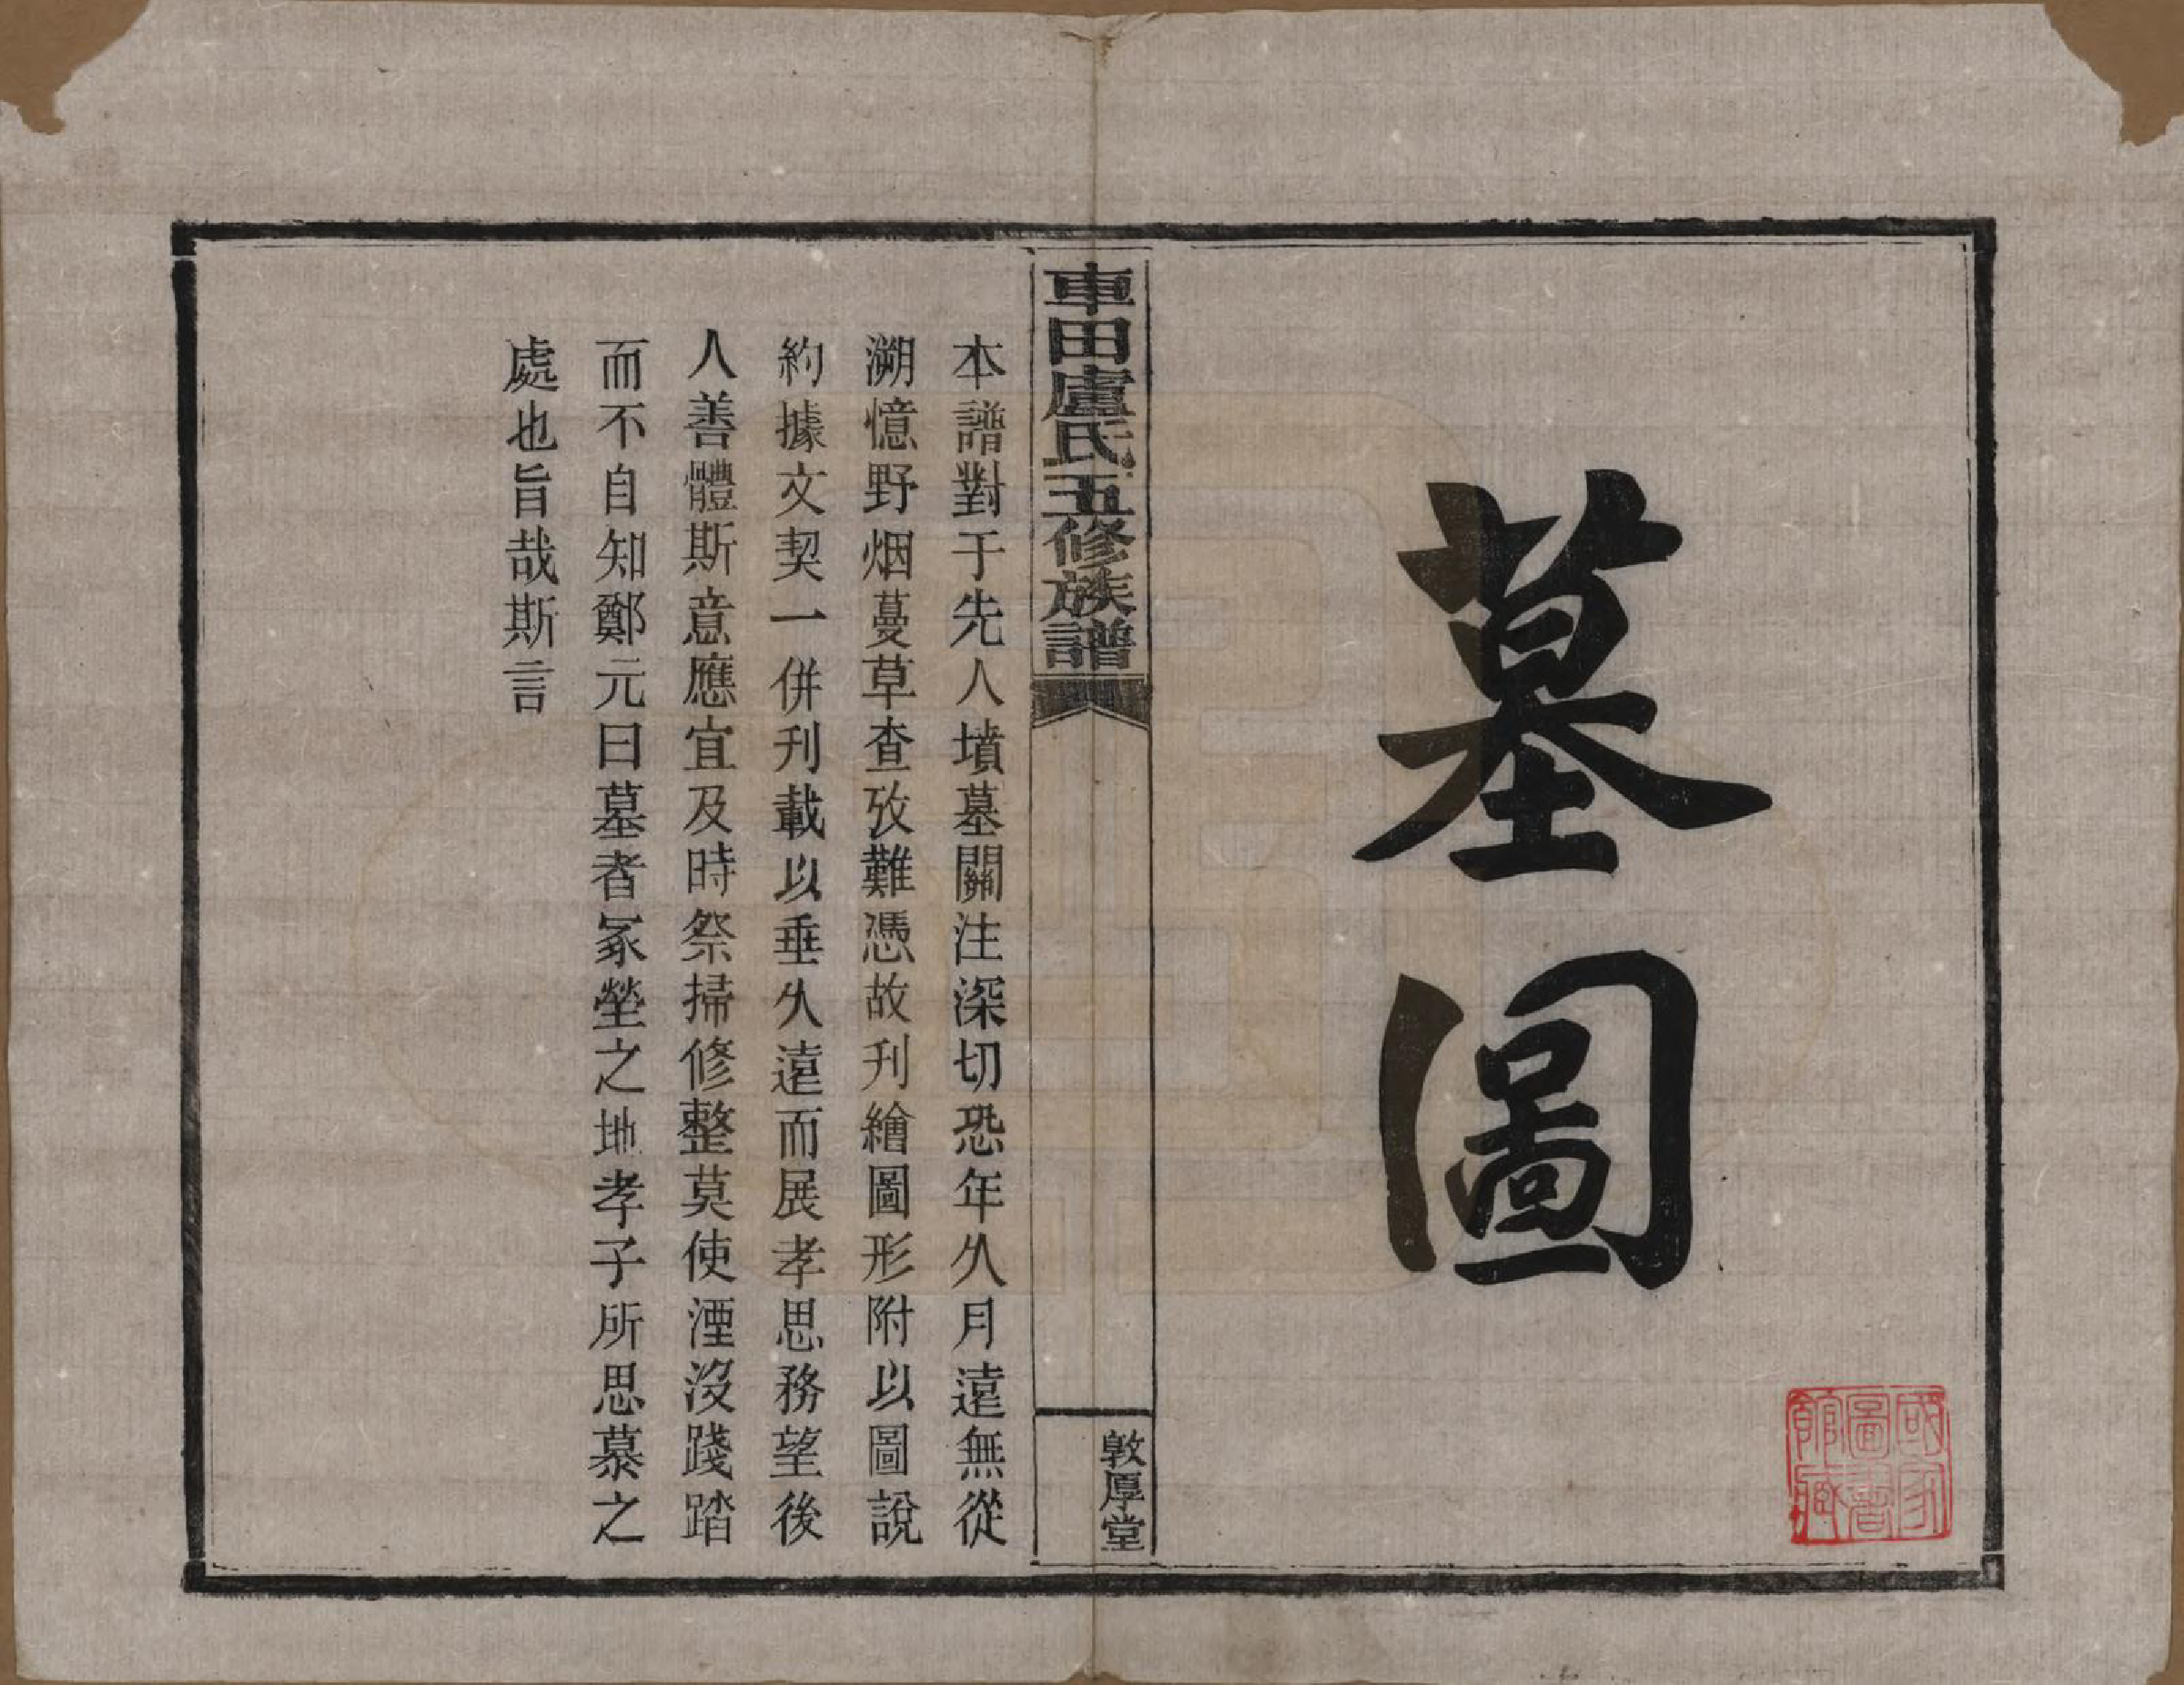 墓圖
國家
圖書
館藏
車田盧氏五修族譜
敦厚堂
本譜對于先人墳墓關注深切恐年久月遠無從
溯憶野烟蔓草查攷難憑故刋繪圖形附以圖說
約據文契一併刋載以垂久遠而展孝思務望後
人善體斯意應宜及時祭掃修整莫使湮沒踐踏
而不自知鄭元曰墓者冢塋之地孝子所思慕之
處也旨哉斯言